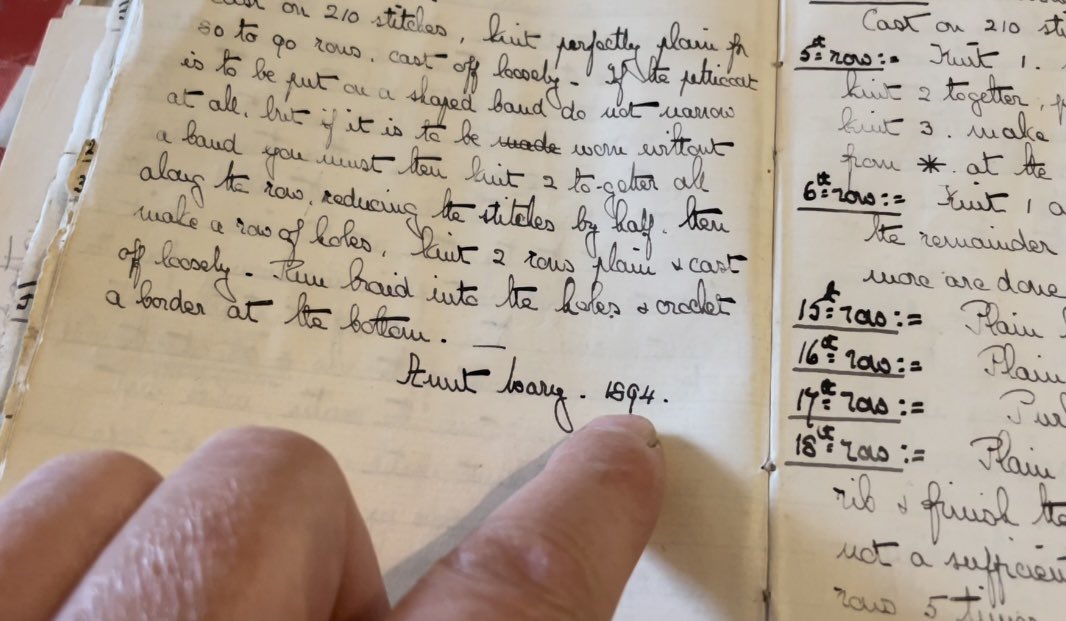 Cast on 210 stitches, knit perfectly plain for
80 to 90 rows. cast off loosely - If the petticoat
is to be put on a shaped band do not narrow
at all, but if it is to be made worn without
a band you must then knit 2 to-getter all
along the row, reducing the stitches by half. then
make a row of holes, knit 2 rows plain & cast
off loosely - Run braid into the holes & crochet
a border at the bottom. —
Aunt Mary - 1894.
Cast on 210 sti
5th row:= Knit 1.
knit 2 together,
knit 3. make
from *. at the
6th row:= Knit 1
the remainder
more are done
15th row:= Plain
16th row:= Plain
17th row:= Pur
18th row:= Plain
rib & finish the
not a sufficien
rows 5 times